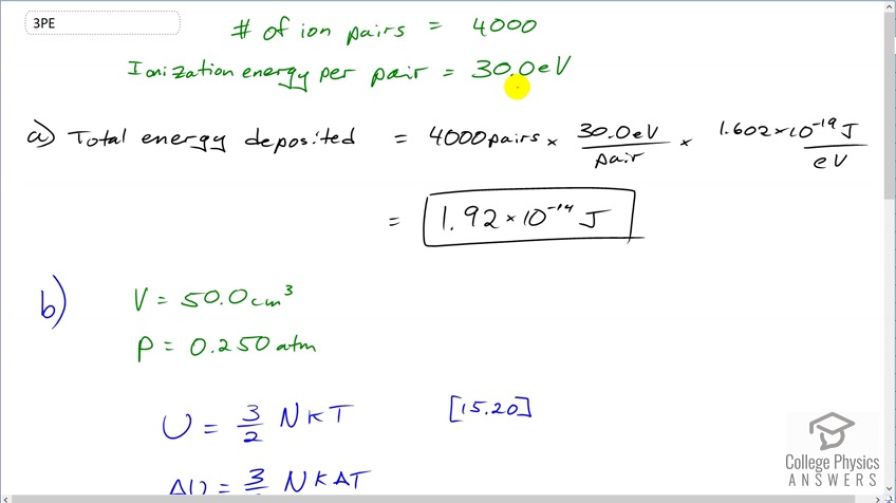 3PE
# of ion pairs = 4000
Ionization energy per pair = 30.0 eV
a) Total energy deposited = 4000 pairs × 30.0 eV / pair × 1.602 × 10⁻¹⁹ J / eV
= 1.92 × 10⁻¹⁴ J
b) V = 50.0 cm³
P = 0.250 atm
U = 3/2 NkT [15.20]
ΔU = 3/2 NkΔT
College Physics
ANSWERS